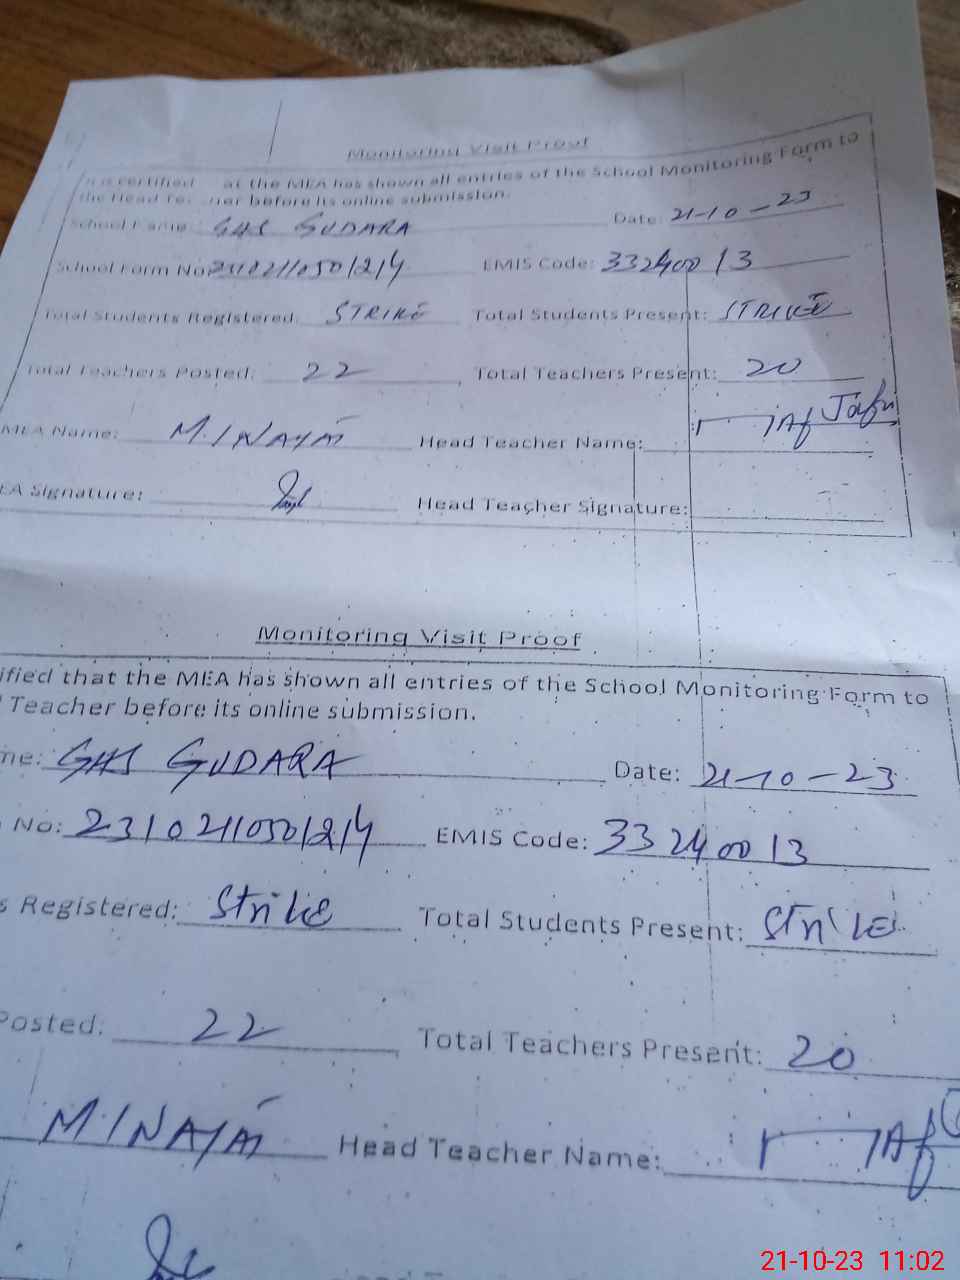 Monitoring Visit Proof
It is certified at the MEA has shown all entries of the School Monitoring Form to
the Head Teacher before its online submission.
School Name: GHS GUDARA Date: 21-10-23
School Form No: 23102110501214 EMIS Code: 33240013
Total Students Registered: STRIKE Total Students Present: STRIKE
Total Teachers Posted: 22 Total Teachers Present: 20
MEA Name: M. INAYAT Head Teacher Name:
EA Signature: Head Teacher Signature:
Monitoring Visit Proof
ified that the MEA has shown all entries of the School Monitoring Form to
Teacher before its online submission.
me: GHS GUDARA Date: 21-10-23
No: 23102110501214 EMIS Code: 33240013
s Registered: Strike Total Students Present: Strike
Posted: 22 Total Teachers Present: 20
M. INAYAT Head Teacher Name:
21-10-23 11:02